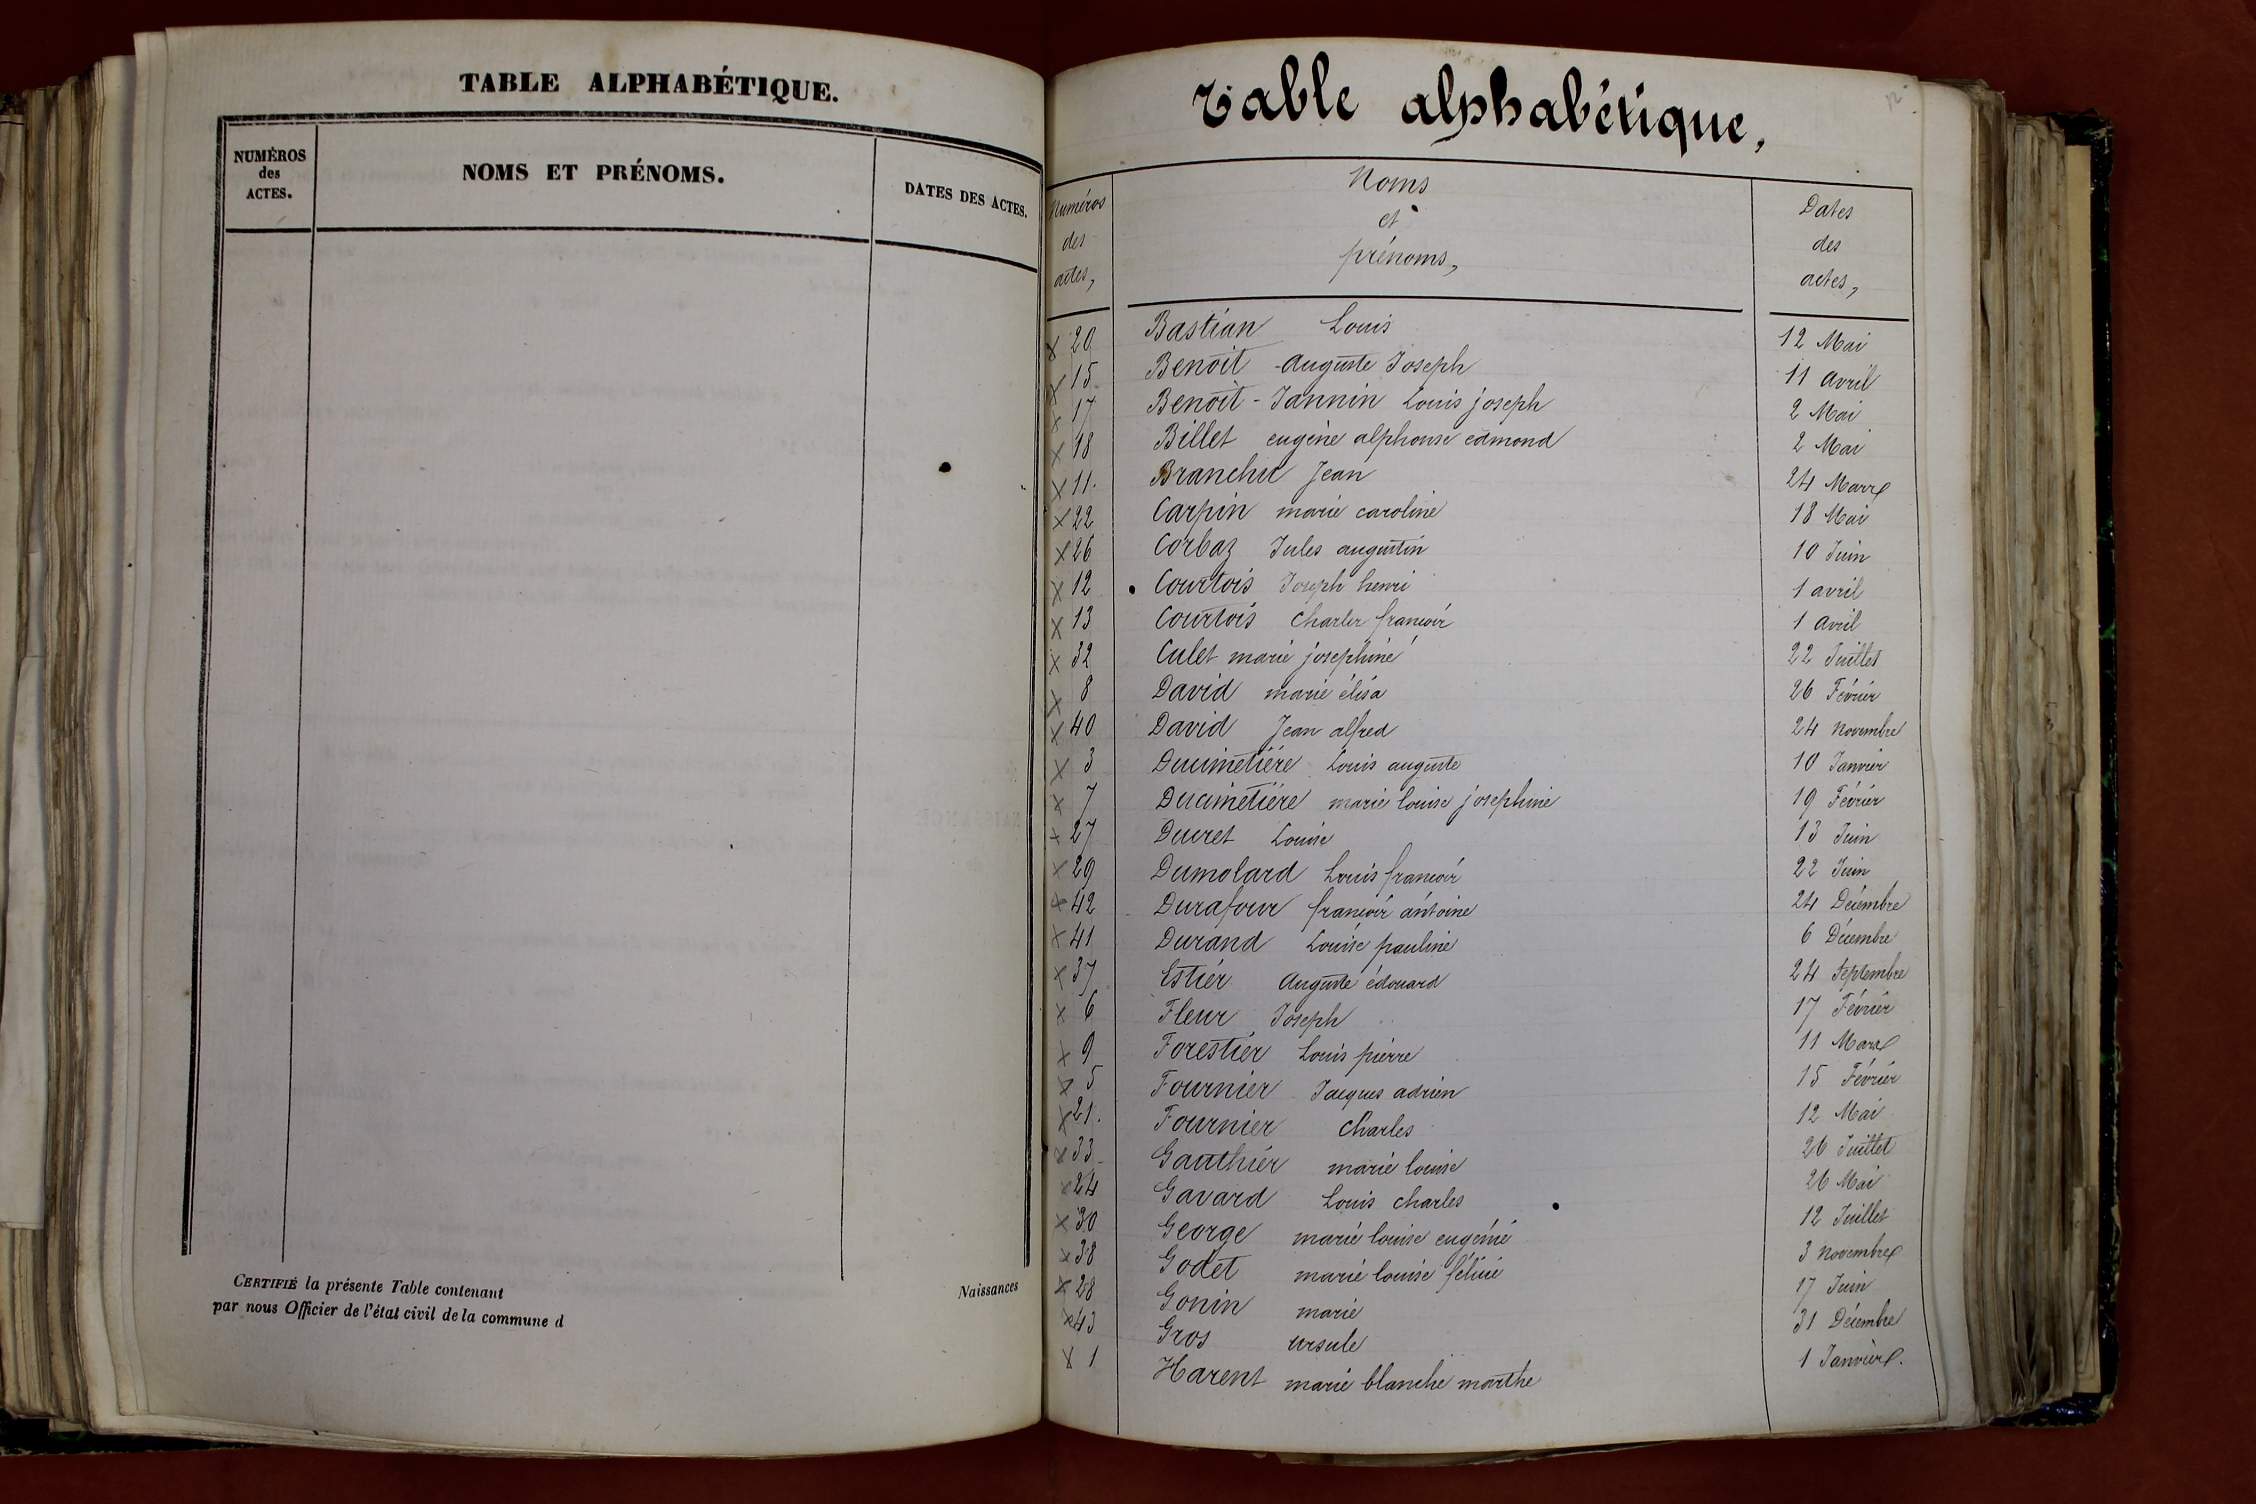 TABLE ALPHABÉTIQUE.
NUMÉROS
des
ACTES.
NOMS ET PRÉNOMS.
DATES DES ACTES.
CERTIFIÉ la présente Table contenant Naissances
par nous Officier de l'état civil de la commune d
Table alphabétique,
Numéros
des
actes,
Noms
et
prénoms,
Dates
des
actes,
x 20 Bastian Louis 12 Mai
x 15 Benoit Auguste Joseph 11 avril
x 17 Benoit-Jannin Louis joseph 2 Mai
x 18 Billet eugène alphonse edmond 2 Mai
x 11. Branchu Jean 24 Mars
x 22 Carpin marie caroline 18 Mai
x 26 Corbaz Jules augustin 10 Juin
x 12 Courtois Joseph henri 1 avril
x 13 Courtois Charles françois 1 avril
x 32 Culet marie joséphine 22 Juillet
x 8 David marie élisa 26 Février
x 40 David Jean alfred 24 novembre
x 3 Ducimetière Louis auguste 10 Janvier
x 7 Ducimetière marie louise joséphine 19 Février
x 27 Ducret Louise 13 Juin
x 29 Dumolard Louis françois 22 Juin
x 42 Durafour françois antoine 24 Décembre
x 41 Durand Louise pauline 6 Décembre
x 37 Estier Auguste édouard 24 Septembre
x 6 Fleur Joseph 17 Février
x 9 Forestier Louis pierre 11 Mars
x 5 Fournier Jacques adrien 15 Février
x 21. Fournier Charles 12 Mai
x 33 Gauthier marie louise 26 Juillet
x 24 Gavard Louis charles 26 Mai
x 30 George marie louise eugénie 12 Juillet
x 38 Godet marie louise félicie 3 novembre
x 28 Gonin marie 17 Juin
x 43 Gros ursule 31 Décembre
x 1 Harent marie blanche marthe 1 Janvier.